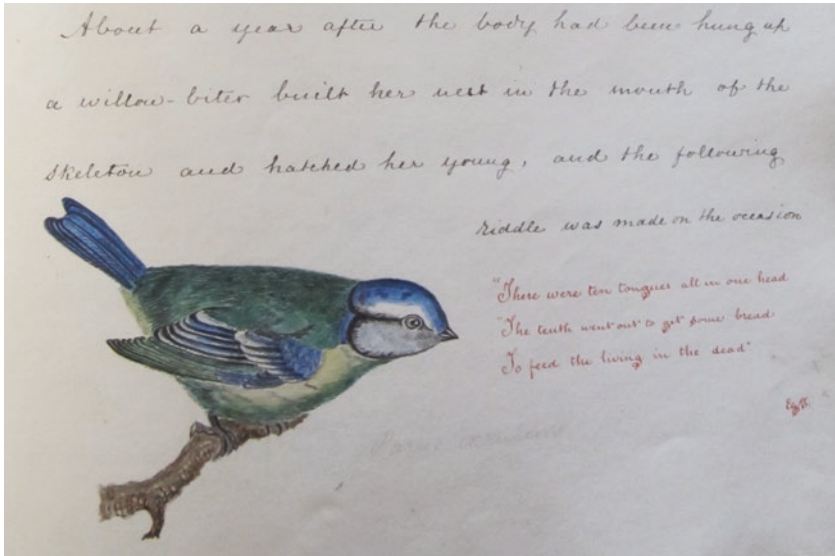 About a year after the body had been hung up
a willow-biter built her nest in the mouth of the
skeleton and hatched her young, and the following
riddle was made on the occasion
"There were ten tongues all in one head
"The tenth went out to get some bread
To feed the living in the dead"